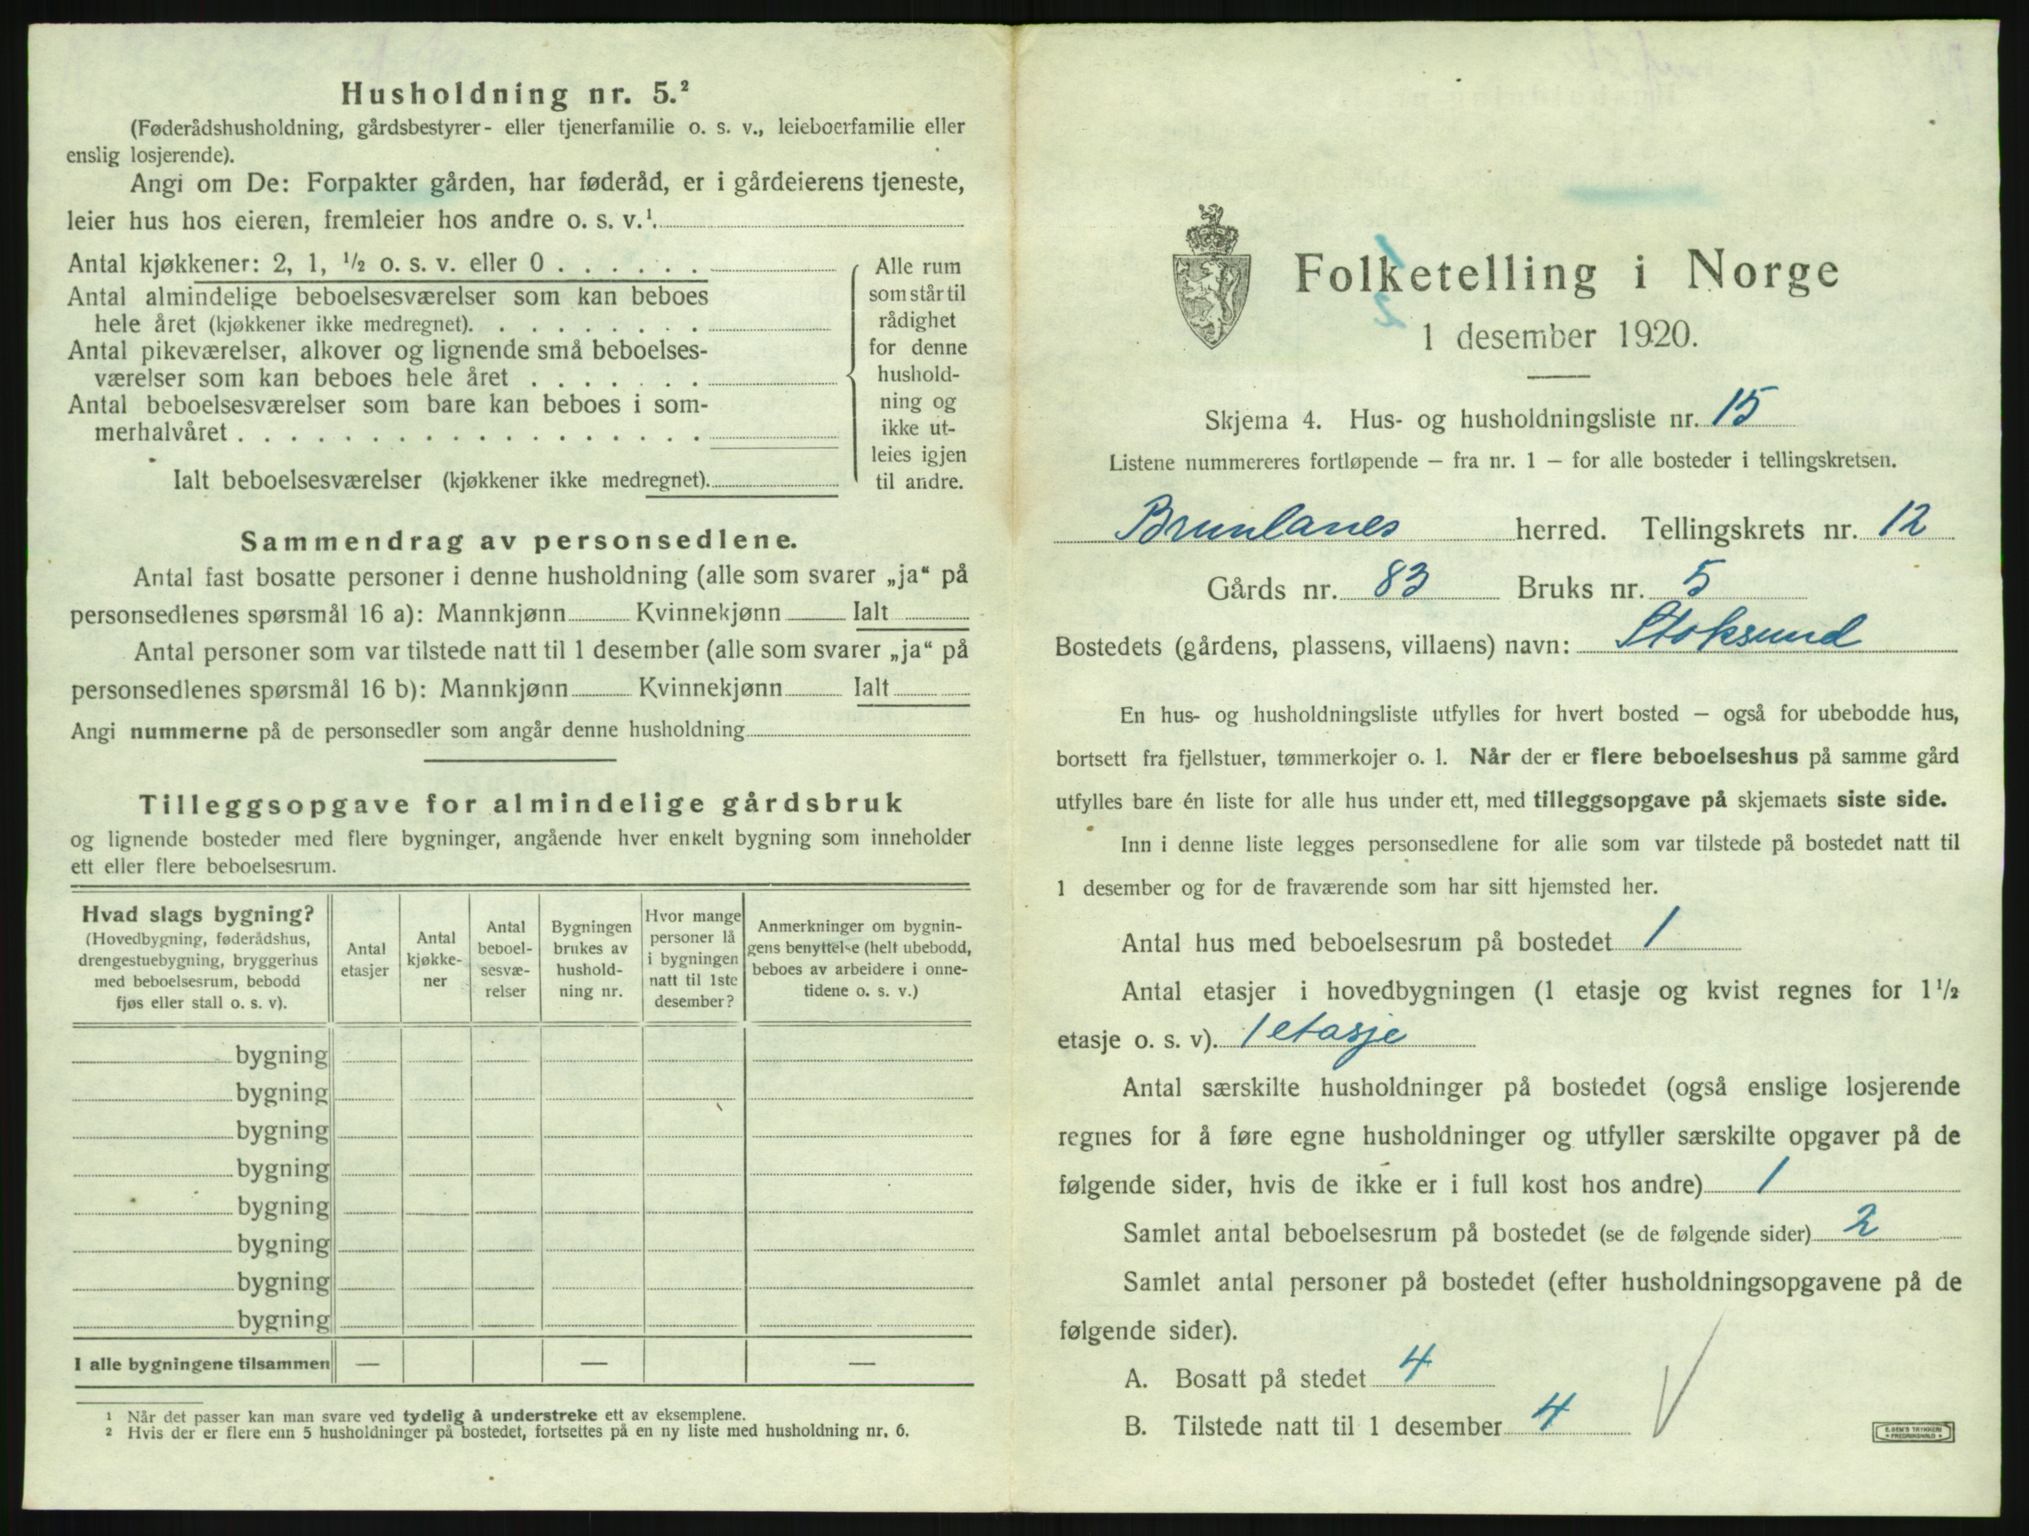 Husholdning nr. 5.²
(Føderådshusholdning, gårdsbestyrer- eller tjenerfamilie o. s. v., leieboerfamilie eller
enslig losjerende).
Angi om De: Forpakter gården, har føderåd, er i gårdeierens tjeneste,
leier hus hos eieren, fremleier hos andre o. s. v.¹
Antal kjøkkener: 2, 1, ½ o. s. v. eller 0 . . . . . .
Antal almindelige beboelsesværelser som kan beboes
hele året (kjøkkener ikke medregnet). . . . . . . . .
Antal pikeværelser, alkover og lignende små beboelses-
værelser som kan beboes hele året . . . . . . .
Antal beboelsesværelser som bare kan beboes i som-
merhalvåret . . . . . . . . . . . . . . . . . .
Ialt beboelsesværelser (kjøkkener ikke medregnet).
Alle rum
som står til
rådighet
for denne
hushold-
ning og
ikke ut-
leies igjen
til andre.
Sammendrag av personsedlene.
Antal fast bosatte personer i denne husholdning (alle som svarer „ja“ på
personsedlenes spørsmål 16 a): Mannkjønn Kvinnekjønn Ialt
Antal personer som var tilstede natt til 1 desember (alle som svarer „ja“ på
personsedlenes spørsmål 16 b): Mannkjønn Kvinnekjønn Ialt
Angi nummerne på de personsedler som angår denne husholdning
Tilleggsopgave for almindelige gårdsbruk
og lignende bosteder med flere bygninger, angående hver enkelt bygning som inneholder
ett eller flere beboelsesrum.
Hvad slags bygning?
(Hovedbygning, føderådshus,
drengestuebygning, bryggerhus
med beboelsesrum, bebodd
fjøs eller stall o. s. v).
Antal
etasjer
Antal
kjøkke-
ner
Antal
beboel-
sesvæ-
relser
Bygningen
brukes av
hushold-
ning nr.
Hvor mange
personer lå
i bygningen
natt til 1ste
desember?
Anmerkninger om bygnin-
gens benyttelse (helt ubebodd,
beboes av arbeidere i onne-
tidene o. s. v.)
bygning
bygning
bygning
bygning
bygning
bygning
bygning
bygning
I alle bygningene tilsammen — — —
¹ Når det passer kan man svare ved tydelig å understreke ett av eksemplene.
² Hvis der er flere enn 5 husholdninger på bostedet, fortsettes på en ny liste med husholdning nr. 6.
Folketelling i Norge
2
1 desember 1920.
Skjema 4. Hus- og husholdningsliste nr. 15
Listene nummereres fortløpende – fra nr. 1 – for alle bosteder i tellingskretsen.
Brunlanes herred. Tellingskrets nr. 12
Gårds nr. 83 Bruks nr. 5
Bostedets (gårdens, plassens, villaens) navn: Stoksund
En hus- og husholdningsliste utfylles for hvert bosted – også for ubebodde hus,
bortsett fra fjellstuer, tømmerkojer o. l. Når der er flere beboelseshus på samme gård
utfylles bare én liste for alle hus under ett, med tilleggsopgave på skjemaets siste side.
Inn i denne liste legges personsedlene for alle som var tilstede på bostedet natt til
1 desember og for de fraværende som har sitt hjemsted her.
Antal hus med beboelsesrum på bostedet 1
Antal etasjer i hovedbygningen (1 etasje og kvist regnes for 1½
etasje o. s. v). 1 etasje
Antal særskilte husholdninger på bostedet (også enslige losjerende
regnes for å føre egne husholdninger og utfyller særskilte opgaver på de
følgende sider, hvis de ikke er i full kost hos andre) 1
Samlet antal beboelsesrum på bostedet (se de følgende sider) 2
Samlet antal personer på bostedet (efter husholdningsopgavene på de
følgende sider).
A. Bosatt på stedet 4
B. Tilstede natt til 1 desember 4